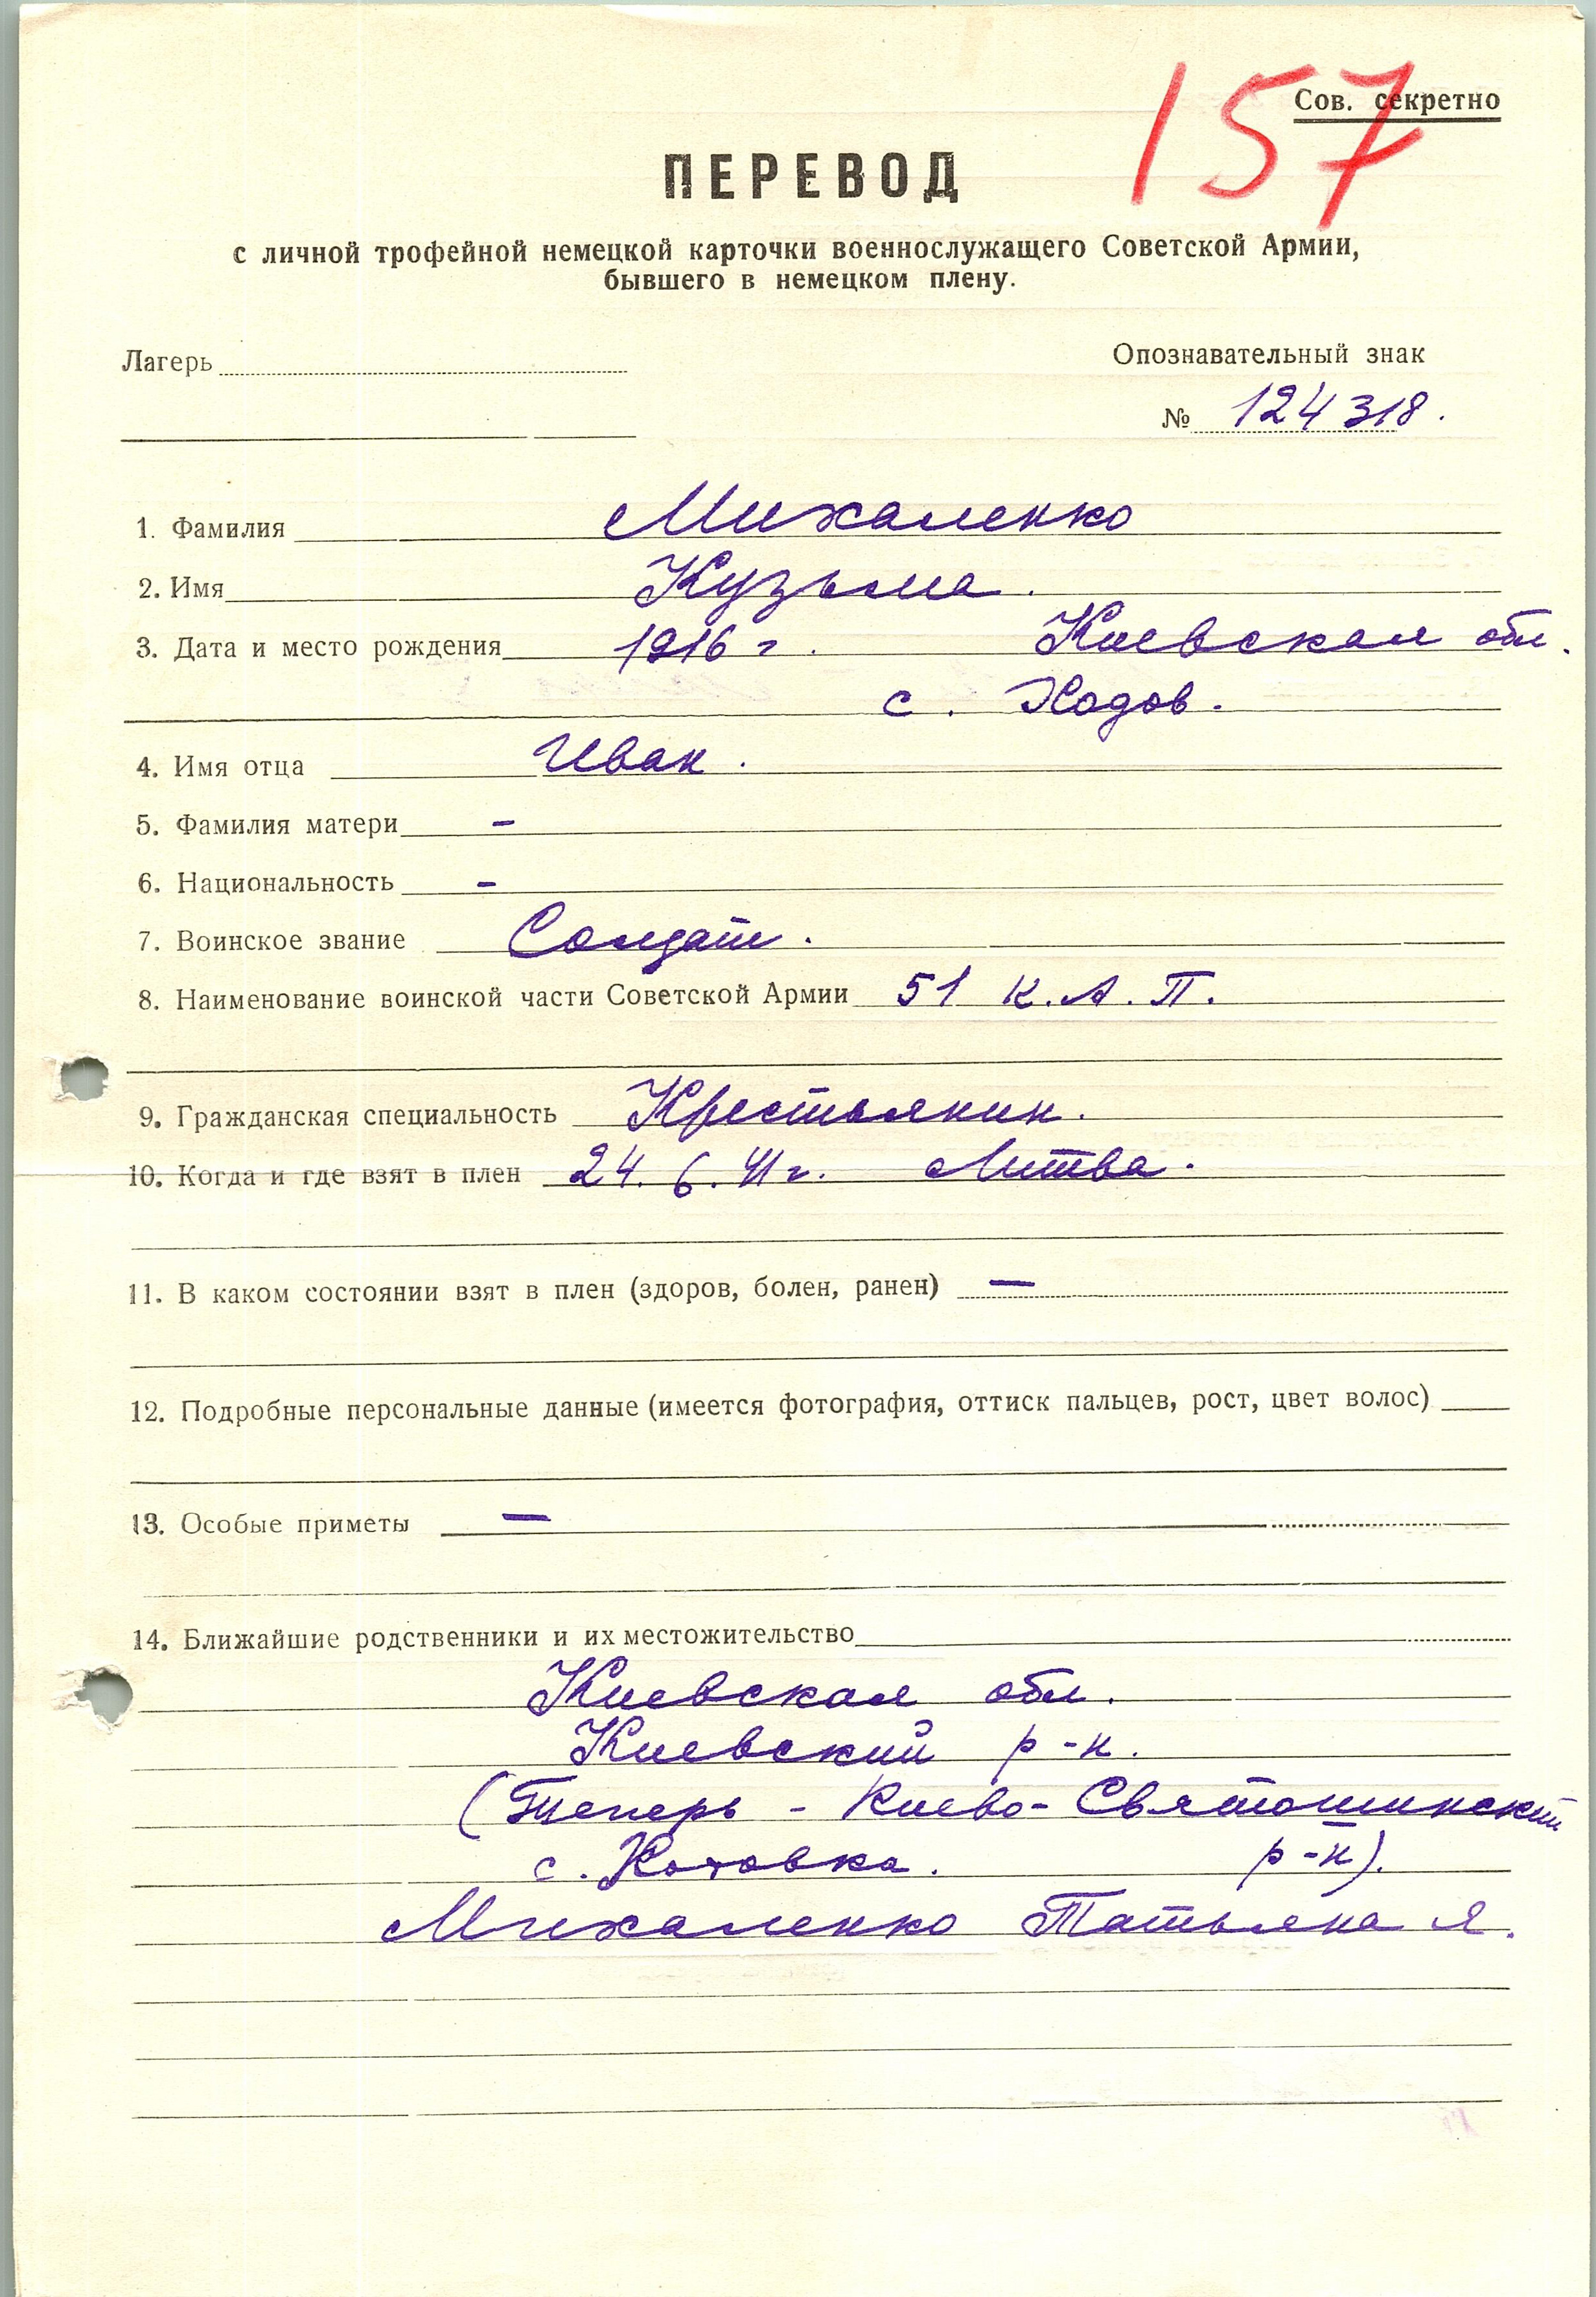 157
Сов. секретно
ПЕРЕВОД
с личной трофейной немецкой карточки военнослужащего Советской Армии,
бывшего в немецком плену.
Лагерь
Опознавательный знак
№ 124318.
1. Фамилия Михаленко
2. Имя Кузьма.
3. Дата и место рождения 1916 г. Киевская обл.
с. Ходов.
4. Имя отца Иван.
5. Фамилия матери –
6. Национальность –
7. Воинское звание Солдат.
8. Наименование воинской части Советской Армии 51 К.А.П.
9. Гражданская специальность Крестьянин.
10. Когда и где взят в плен 24.6.41г. Литва.
11. В каком состоянии взят в плен (здоров, болен, ранен) —
12. Подробные персональные данные (имеется фотография, оттиск пальцев, рост, цвет волос)
13. Особые приметы —
14. Ближайшие родственники и их местожительство
Киевская обл.
Киевский р-н.
(Теперь - Киево-Святошинский
с. Хотовка. р-н).
Михаленко Татьяна Я.